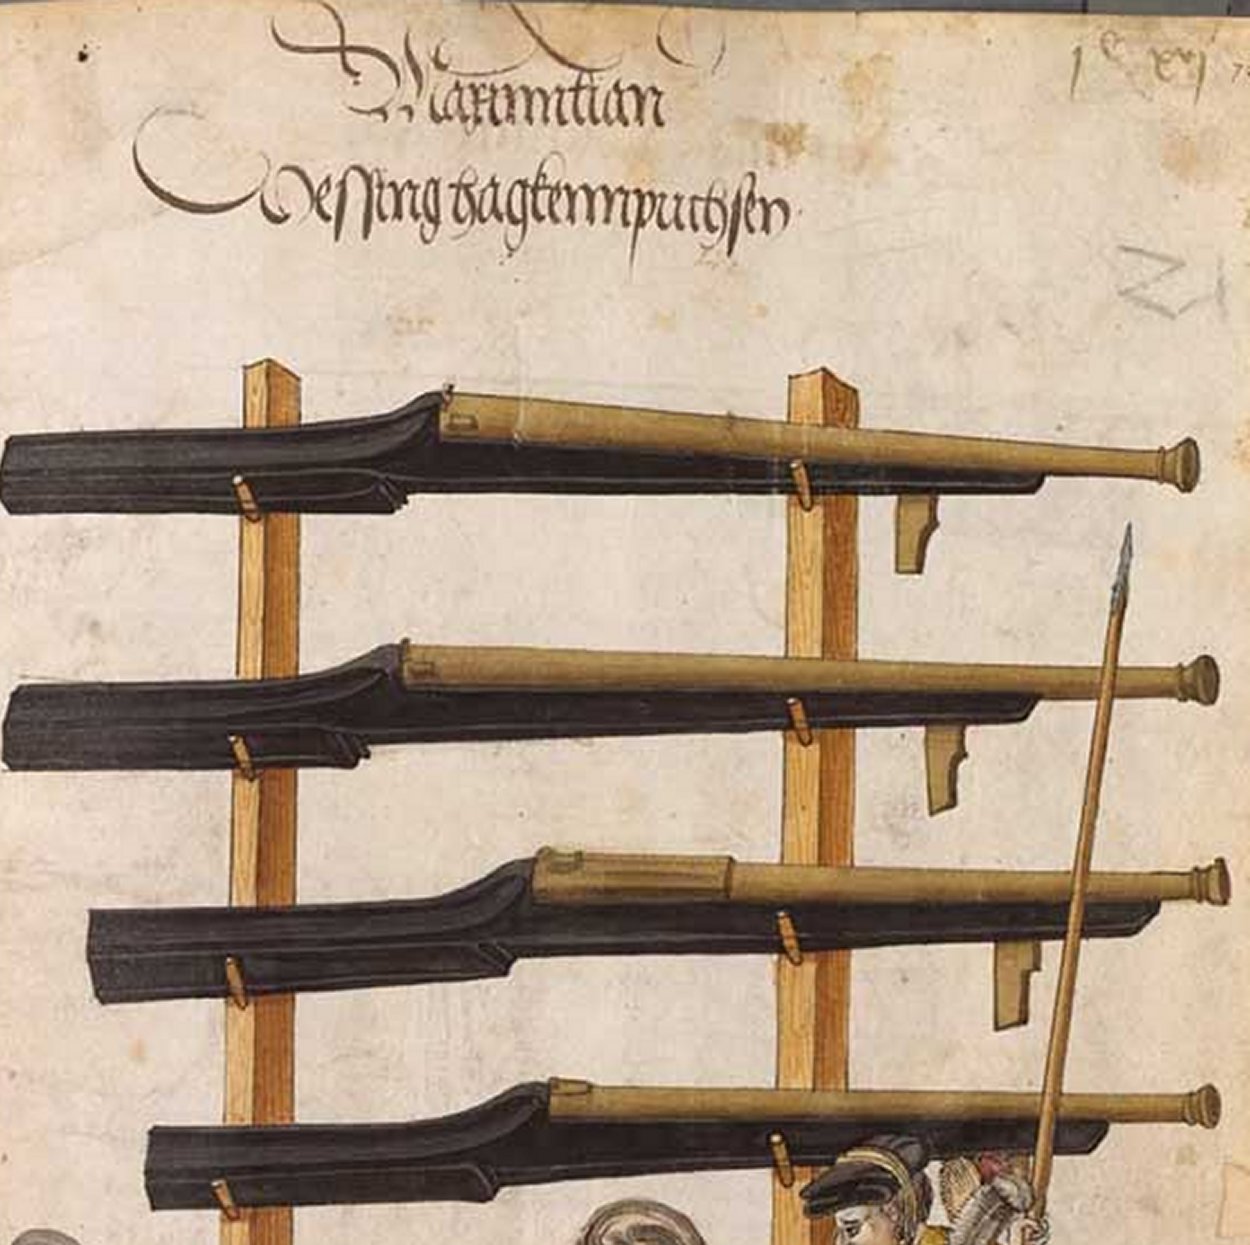 Maximilian
Messing hagkennpuchsen